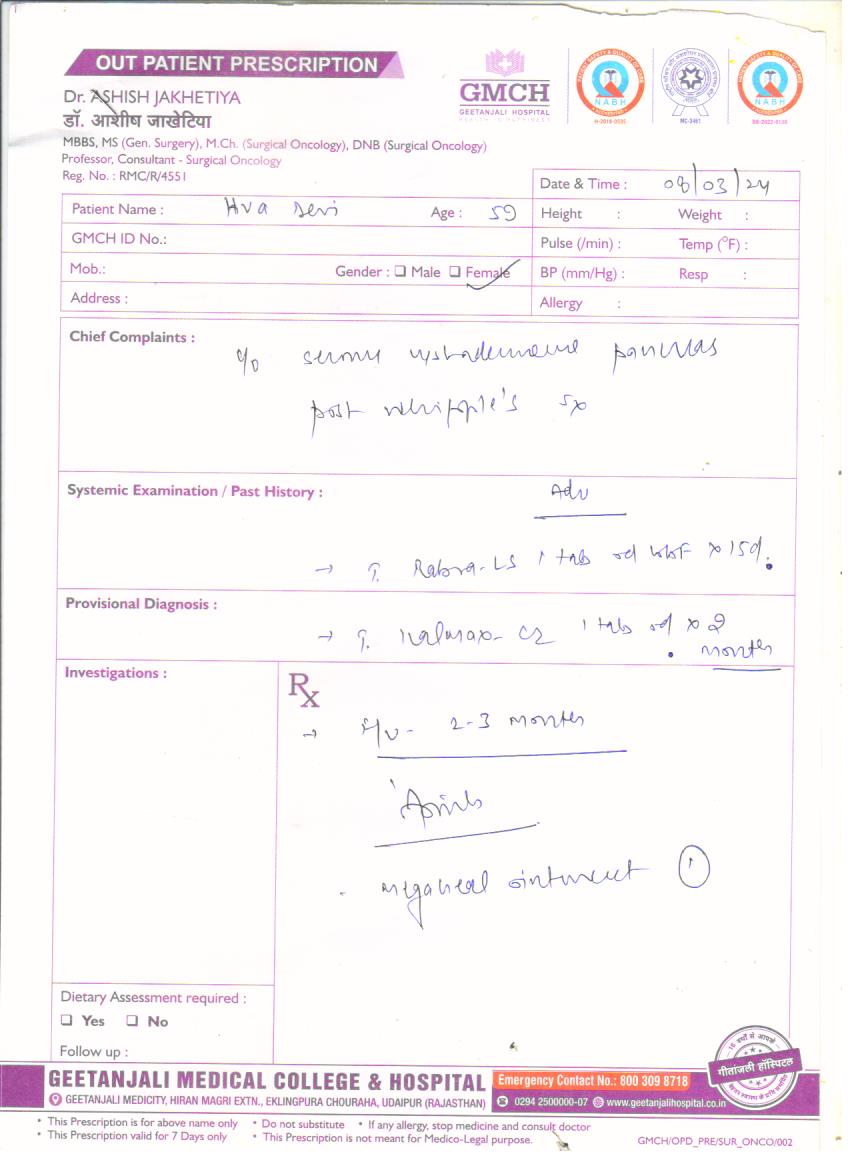 OUT PATIENT PRESCRIPTION
Dr. ASHISH JAKHETIYA
डॉ. आशीष जाखेटिया
MBBS, MS (Gen. Surgery), M.Ch. (Surgical Oncology), DNB (Surgical Oncology)
Professor, Consultant - Surgical Oncology
Reg. No. : RMC/R/4551
GMCH
GEETANJALI HOSPITAL
NABH
H-2018-0535
MC-3461
NABH
Date & Time : 08/03/24
Patient Name : Hva Devi Age : 59 Height : Weight :
GMCH ID No.: Pulse (/min) : Temp (°F) :
Mob.: Gender : ☐ Male ☐ Female ✓ BP (mm/Hg) : Resp :
Address : Allergy :
Chief Complaints :
serous cystadenoma pancreas
post whipple's sx
Systemic Examination / Past History :
Adv
→ T. Rabra-LS 1 tab od bbf x 15d.
Provisional Diagnosis :
→ T. 1 tab od x 2
months
Investigations :
Rx
→ F/U - 2-3 months
megaheal ointment 1
Dietary Assessment required :
☐ Yes ☐ No
Follow up :
गीतांजली हॉस्पिटल
GEETANJALI MEDICAL COLLEGE & HOSPITAL
Emergency Contact No.: 800 309 8718
GEETANJALI MEDICITY, HIRAN MAGRI EXTN., EKLINGPURA CHOURAHA, UDAIPUR (RAJASTHAN)
0294 2500000-07 www.geetanjalihospital.co.in
• This Prescription is for above name only • Do not substitute • If any allergy, stop medicine and consult doctor
• This Prescription valid for 7 Days only • This Prescription is not meant for Medico-Legal purpose.
GMCH/OPD_PRE/SUR_ONCO/002